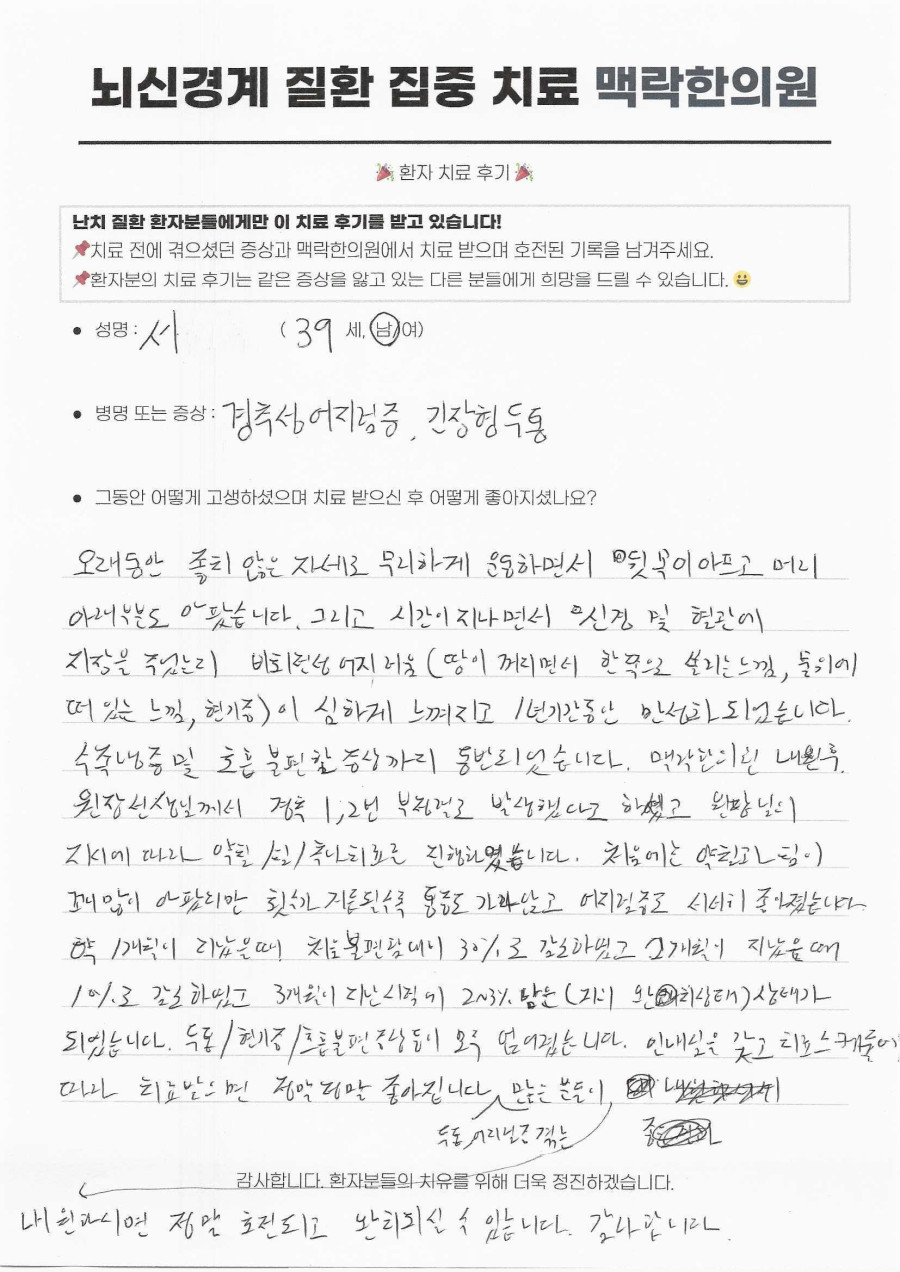 뇌신경계 질환 집중 치료 맥락한의원
🎉 환자 치료 후기 🎉
난치 질환 환자분들에게만 이 치료 후기를 받고 있습니다!
📌치료 전에 겪으셨던 증상과 맥락한의원에서 치료 받으며 호전된 기록을 남겨주세요.
📌환자분의 치료 후기는 같은 증상을 앓고 있는 다른 분들에게 희망을 드릴 수 있습니다. 😀
• 성명 : 서 ( 39 세, 남/여)
• 병명 또는 증상 : 경추성어지럼증, 긴장형두통
• 그동안 어떻게 고생하셨으며 치료 받으신 후 어떻게 좋아지셨나요?
오래동안 좋지 않은 자세로 무리하게 운동하면서 뒷목이아프고 머리
아래부분도 아팠습니다. 그리고 시간이지나면서 신경 및 혈관에
지장을 주었는지 비회전성어지러움(땅이 꺼지면서 한쪽으로 쏠리는느낌, 물위에
떠 있는 느낌, 현기증)이 심하게 느껴지고 1년기간동안 만성화되었습니다.
수족냉증및 호흡불편할증상까지 동반되었습니다. 맥락한의원 내원후,
원장선생님께서 경추 1,2번 부정렬로 발생했다고 하셨고 원장님의
지시에 따라 약침/침/추나치료를 진행하였습니다. 처음에는 약침과 침이
꽤많이 아팠지만 횟수가 거듭될수록 통증도 가라앉고 어지럼증도 서서히 좋아졌습니다.
약 1개월이 지났을때, 처음불편함대비 30%로 감소하였고 2개월이 지났을때
10%로 감소하였고 3개월이 지난시점에 2~3% 남은(거의 완치상태)상태가
되었습니다. 두통/현기증/호흡불편증상들이 모두 없어졌습니다. 인내심을 갖고 치료스케줄에
따라 치료받으면 정말정말 좋아집니다. 많은 분들이
두통,어지럼증 겪는
감사합니다. 환자분들의 치유를 위해 더욱 정진하겠습니다.
내원하시면 정말 호전되고 완치되실 수 있습니다. 감사합니다.